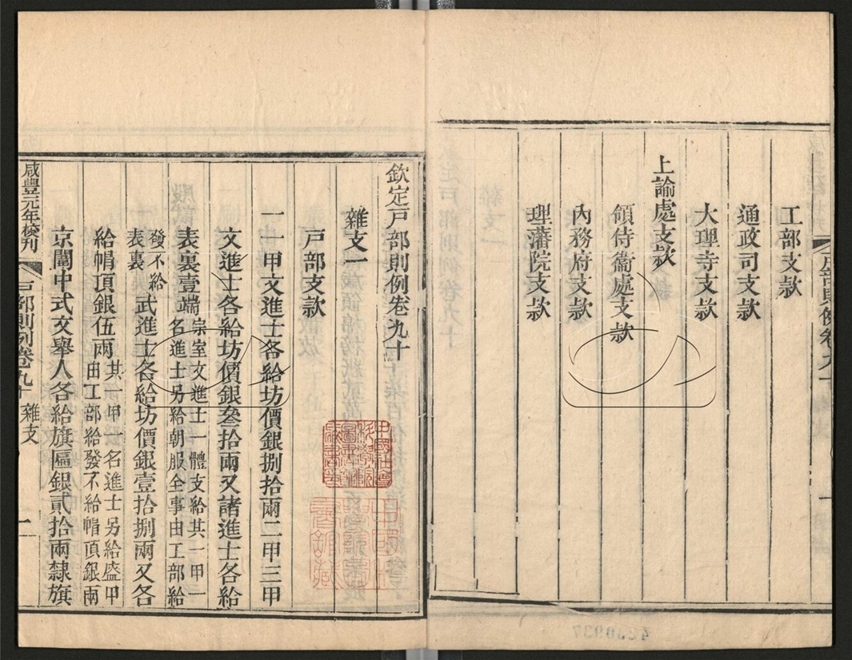 戸部則例卷九十
工部支款
通政司支款
大理寺支款
上諭處支款
領侍衞處支款
內務府支款
理藩院支款
欽定戸部則例卷九十
雜支一
戸部支款
一一甲文進士各給坊價銀捌拾兩二甲三甲
文進士各給坊價銀叄拾兩又諸進士各給
表裏壹端宗室文進士一體支給其一甲一名進士另給朝服全事由工部給
發不給表裏武進士各給坊價銀壹拾捌兩又各
給帽頂銀伍兩其一甲一名進士另給盔甲由工部給發不給帽頂銀兩
京闈中式文舉人各給旗匾銀貳拾兩隸旗
咸豐元年校刊 戸部則例卷九十 雜支 一